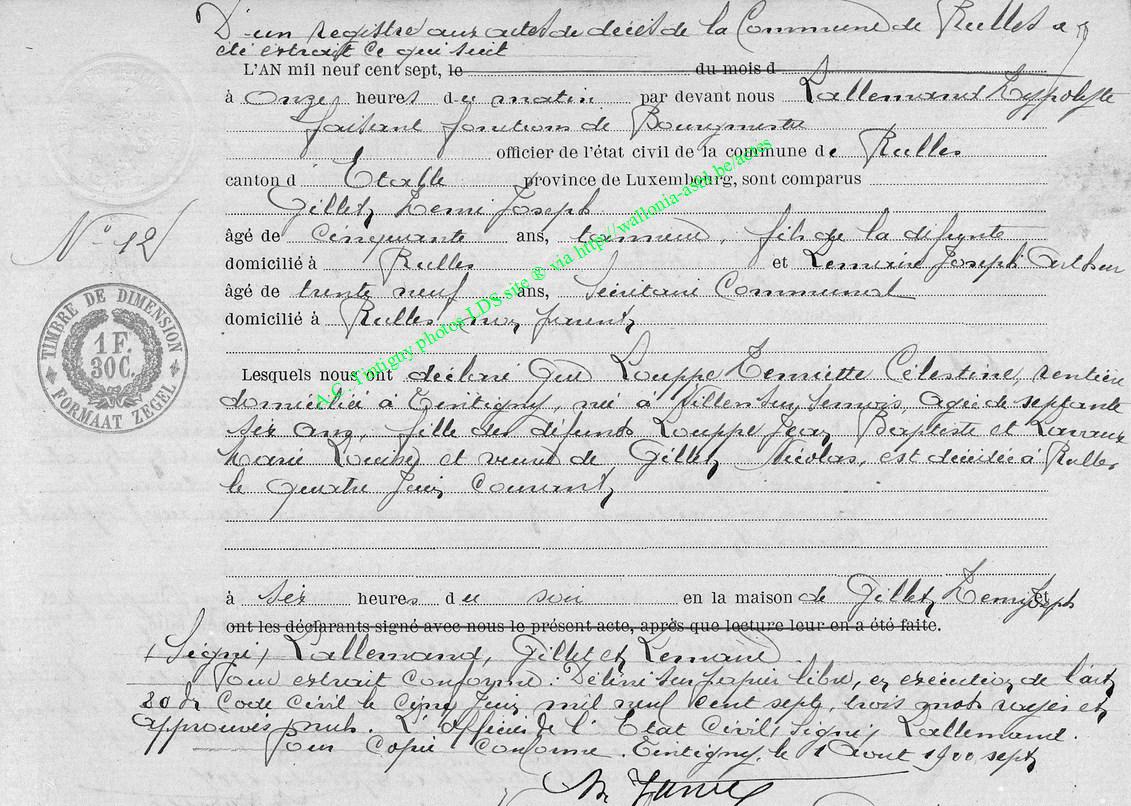 D'un registre aux actes de décès de la Commune de Rulles a
été extrait ce qui suit
L'AN mil neuf cent sept, le du mois d
à Onze heures du matin par devant nous Lallemand Hyppolyte
faisant fonctions de Bourgmestre
officier de l'état civil de la commune de Rulles
canton d'Etalle province de Luxembourg, sont comparus
Gillet Henri Joseph
N° 12
âgé de cinquante ans, tanneur, fils de la défunte
domicilié à Rulles et Lemaire Joseph Arthur
âgé de trente neuf ans, Secrétaire Communal
domicilié à Rulles non parent
TIMBRE DE DIMENSION
1 F.
30 C.
FORMAAT ZEGEL
A.G. Tintigny photos LDS site ® via http://wallonia-asbl.be/actes
Lesquels nous ont déclaré que Louppe Henriette Célestine, rentière
domiciliée à Tintigny, née à Villers sur Semois, âgée de septante
six ans, fille des défunts Louppe Jean Baptiste et Lavaux
Marie Louise et veuve de Gillet Nicolas, est décédée à Rulles
le quatre Juin courant
à six heures du soir en la maison de Gillet Henri Joseph et
ont les déclarants signé avec nous le présent acte, après que lecture leur en a été faite.
(Signé) Lallemand, Gillet et Lemaire
Pour extrait conforme. Délivré sur papier libre, en exécution de l'art
80 du Code civil le cinq Juin mil neuf cent sept, trois mots rayés et
approuvés nuls. L'Officier de l'Etat Civil, signé, Lallemand.
Pour Copie Conforme. Tintigny, le 1 Août 1900 sept